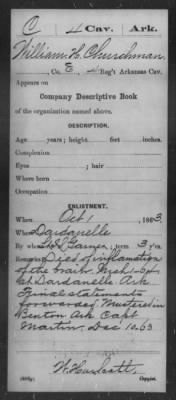 C 4 Cav. Ark.
William H. Churchman
, Co. E, 4 Reg't Arkansas Cav.
Appears on
Company Descriptive Book
of the organization named above.
DESCRIPTION.
Age years; height feet inches.
Complexion
Eyes ; hair
Where born
Occupation
ENLISTMENT.
When Oct 1, 1863
Where Dardanelle
By Garner; term 3 y'rs.
Remarks: Died of inflamation
of the brain Mch 1-64
at Dardanelle Ark
Final statements
forwarded Mustered in
Benton Ark Capt
Martin, Dec 10, 63
Copyist.